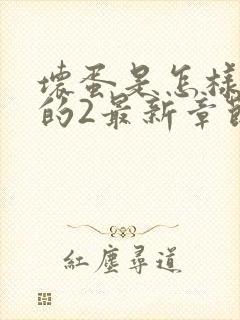 壞蛋是怎樣
的2最新章節
紅塵尋道